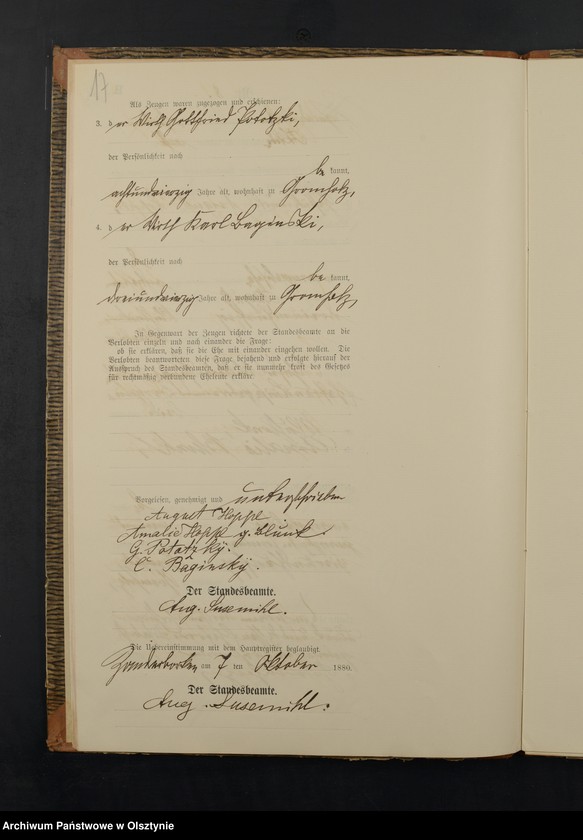 17
Als Zeugen waren zugezogen und erschienen:
3. der Wirth Gottfried Pototzki,
der Persönlichkeit nach
be kannt,
achtundvierzig Jahre alt, wohnhaft zu Gromholz,
4. der Wirth Karl Baginski,
der Persönlichkeit nach
be kannt,
dreiundvierzig Jahre alt, wohnhaft zu Gromholz,
In Gegenwart der Zeugen richtete der Standesbeamte an die
Verlobten einzeln und nach einander die Frage:
ob sie erklären, daß sie die Ehe mit einander eingehen wollen. Die
Verlobten beantworteten diese Frage bejahend und erfolgte hierauf der
Ausspruch des Standesbeamten, daß er sie nunmehr kraft des Gesetzes
für rechtmäßig verbundene Eheleute erkläre.
Vorgelesen, genehmigt und unterschrieben
August Hoppe
Amalie Hoppe g. Blunk.
G. Potatzky.
C. Baginsky.
Der Standesbeamte.
Aug. Susemihl.
Die Uebereinstimmung mit dem Hauptregister beglaubigt.
am 7 ten Oktober 1880.
Der Standesbeamte.
Aug. Susemihl.
Archiwum Państwowe w Olsztynie